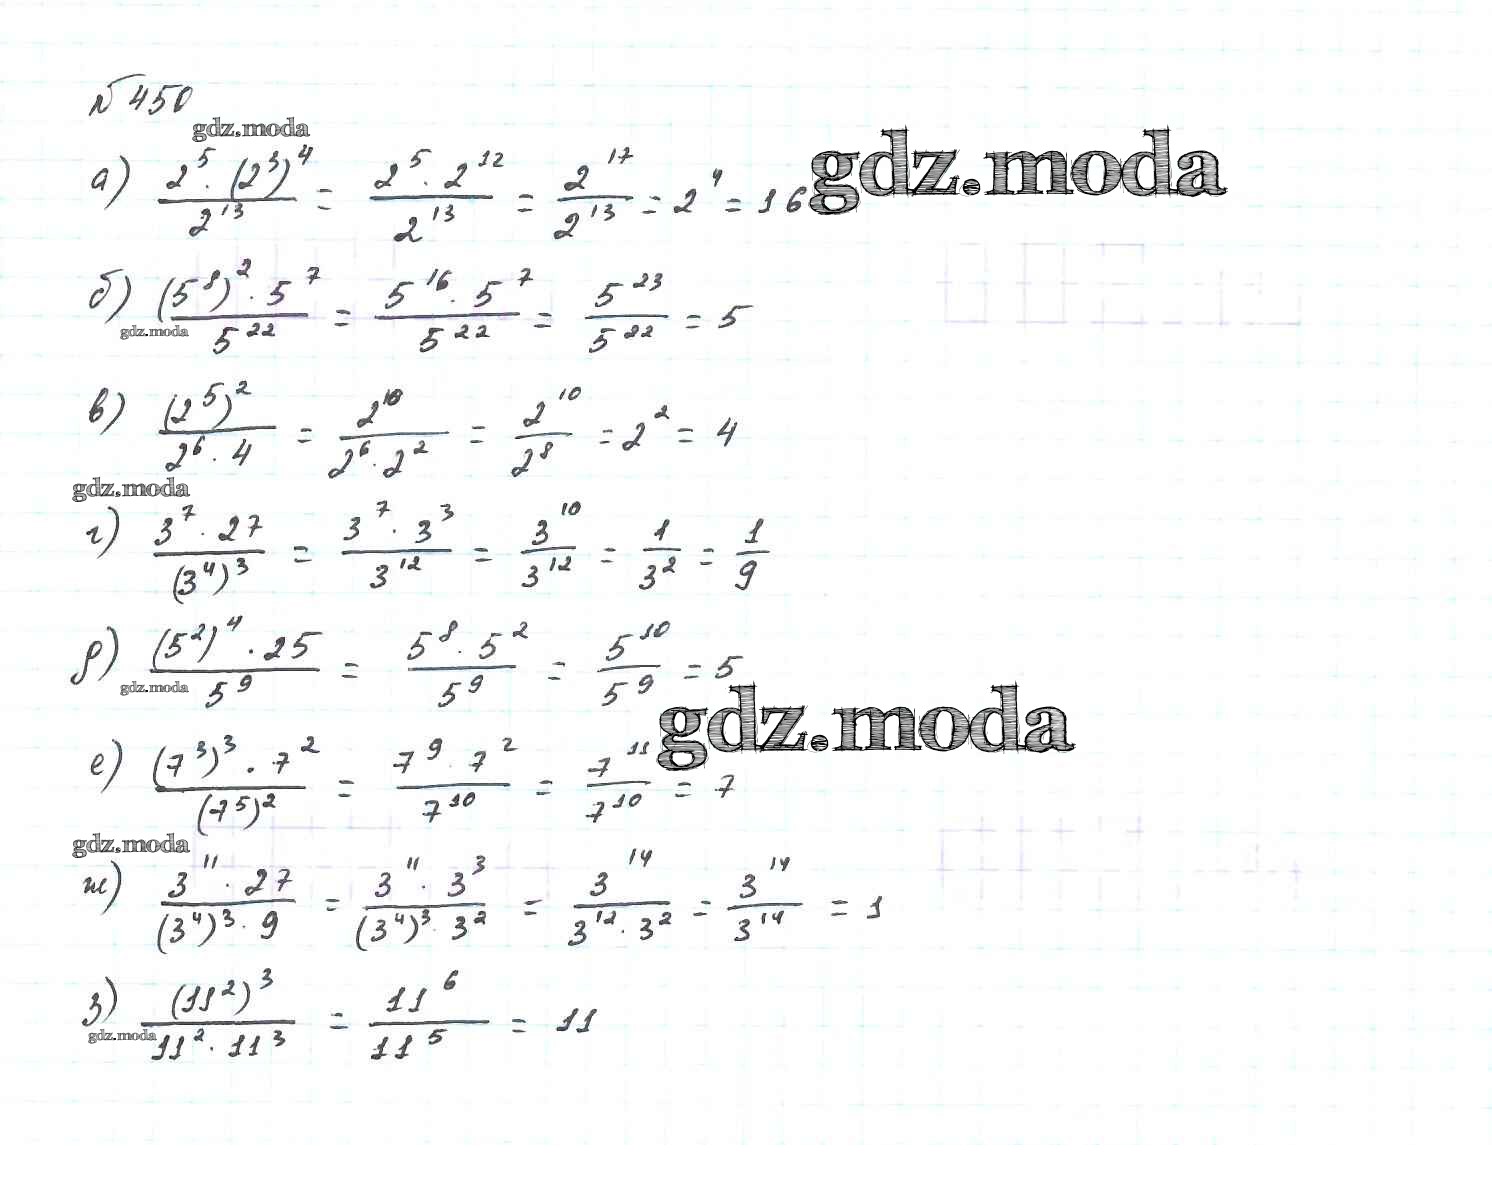 № 450
gdz.moda
а) (2^5 · (2^3)^4)/(2^13) = (2^5 · 2^12)/(2^13) = (2^17)/(2^13) = 2^4 = 16
gdz.moda
б) ((5^8)^2 · 5^7)/(5^22) = (5^16 · 5^7)/(5^22) = (5^23)/(5^22) = 5
gdz.moda
в) ((2^5)^2)/(2^6 · 4) = (2^10)/(2^6 · 2^2) = (2^10)/(2^8) = 2^2 = 4
gdz.moda
г) (3^7 · 27)/((3^4)^3) = (3^7 · 3^3)/(3^12) = (3^10)/(3^12) = 1/(3^2) = 1/9
д) ((5^2)^4 · 25)/(5^9) = (5^8 · 5^2)/(5^9) = (5^10)/(5^9) = 5
gdz.moda
gdz.moda
е) ((7^3)^3 · 7^2)/((7^5)^2) = (7^9 · 7^2)/(7^10) = (7^11)/(7^10) = 7
gdz.moda
ж) (3^11 · 27)/((3^4)^3 · 9) = (3^11 · 3^3)/((3^4)^3 · 3^2) = (3^14)/(3^12 · 3^2) = (3^14)/(3^14) = 1
з) ((11^2)^3)/(11^2 · 11^3) = (11^6)/(11^5) = 11
gdz.moda